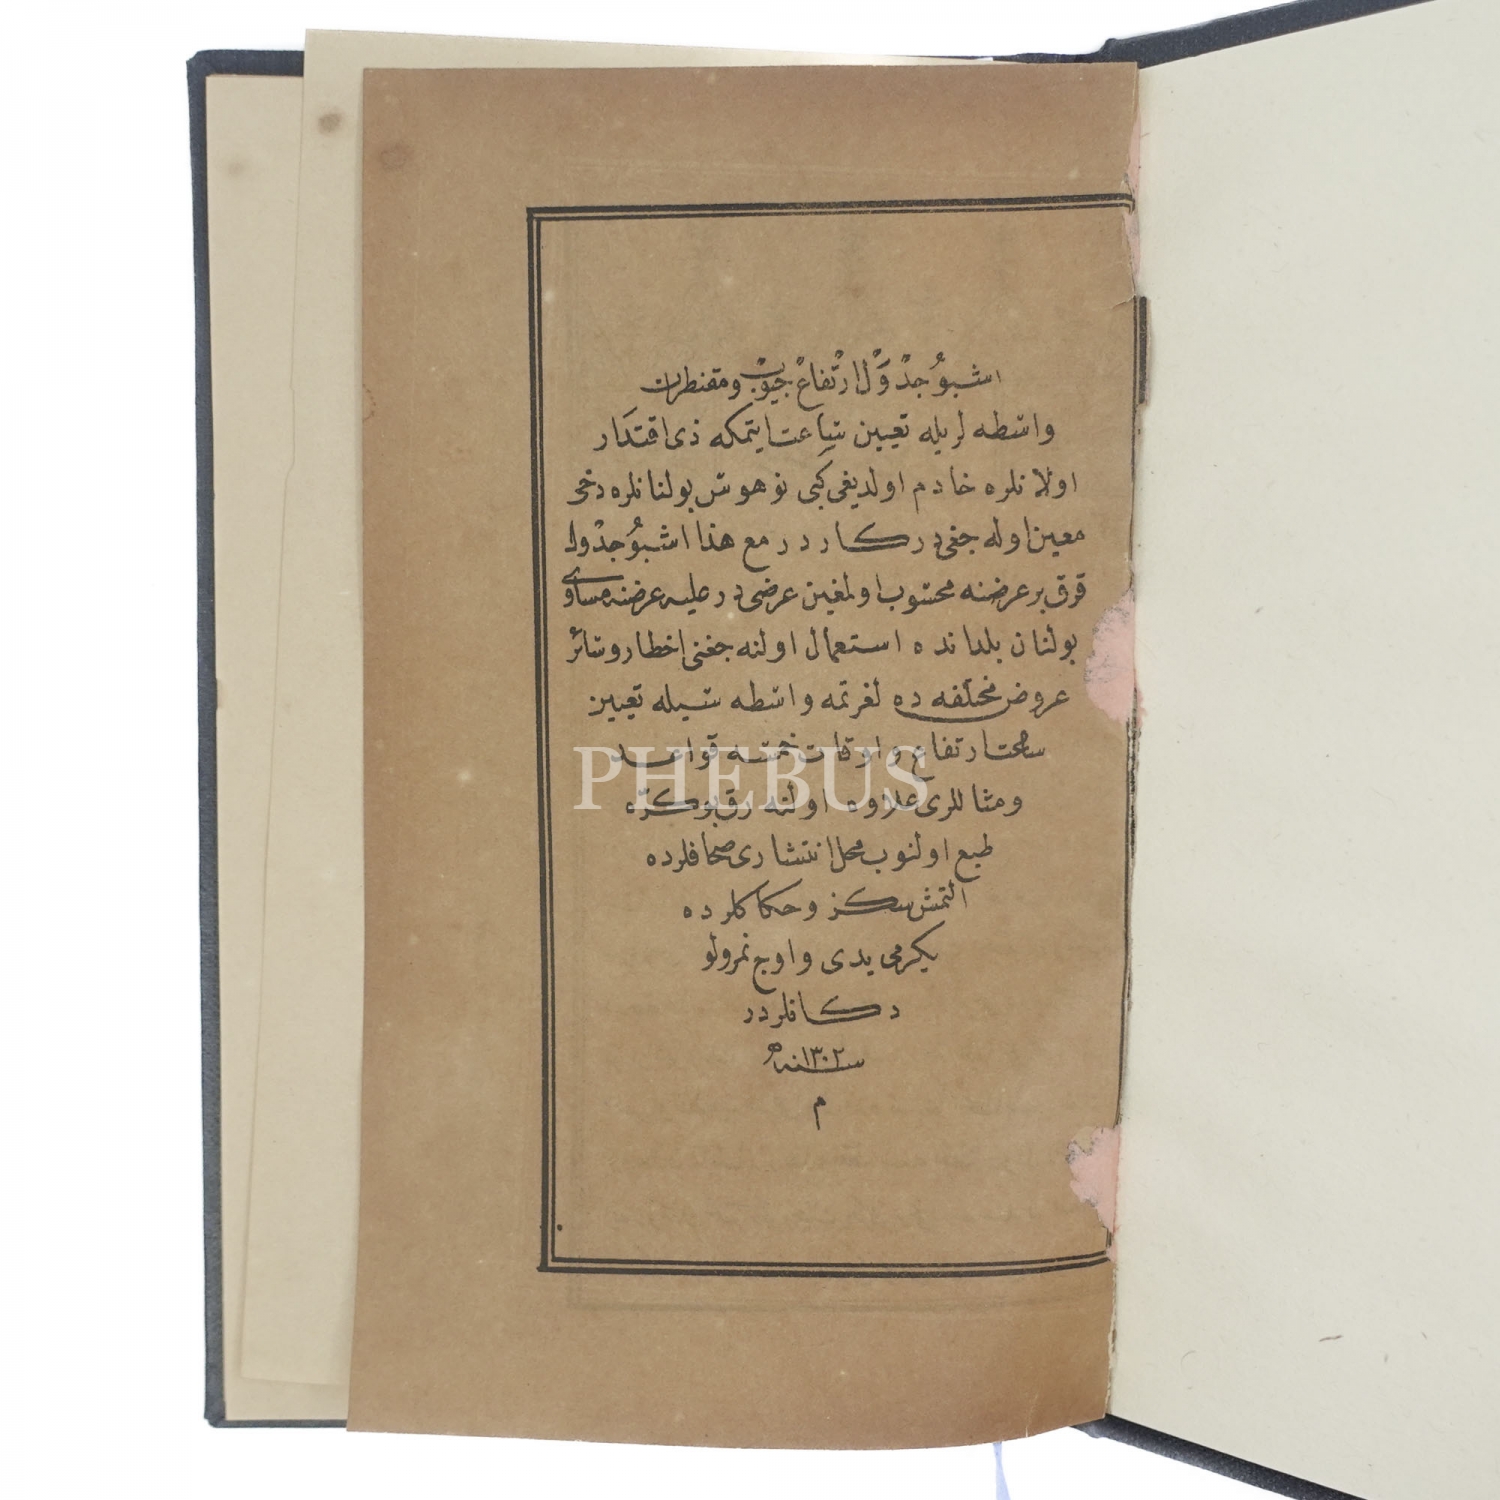 اشبو جدول ارتفاع جيوب ومقنطرات
واسطه لريله تعيين ساعت ايتمكه ذى اقتدار
اولانلره خادم اولديغى كبى نوهوس بولنانلره دخى
معين اوله جغى دركار در مع هذا اشبو جدول
قرق بر عرضنه محسوب اولمغين عرضى در عليه عرضنه مساوى
بولنان بلدانده استعمال اولنه جغنى اخطار وسائر
عروض مختلفه ده لغرتمه واسطه سيله تعيين
ساعت ارتفاع و اوقات خمسه قواعد
ومثاللرى علاوه اولنه رق بو كره
طبع اولنوب محل انتشارى صحافلرده
التمش سكز وحكاكلرده
يكرمى يدى و اوچ نمرولو
دكانلردر
سنه ١٣٠٢ هـ
م
PHEBUS